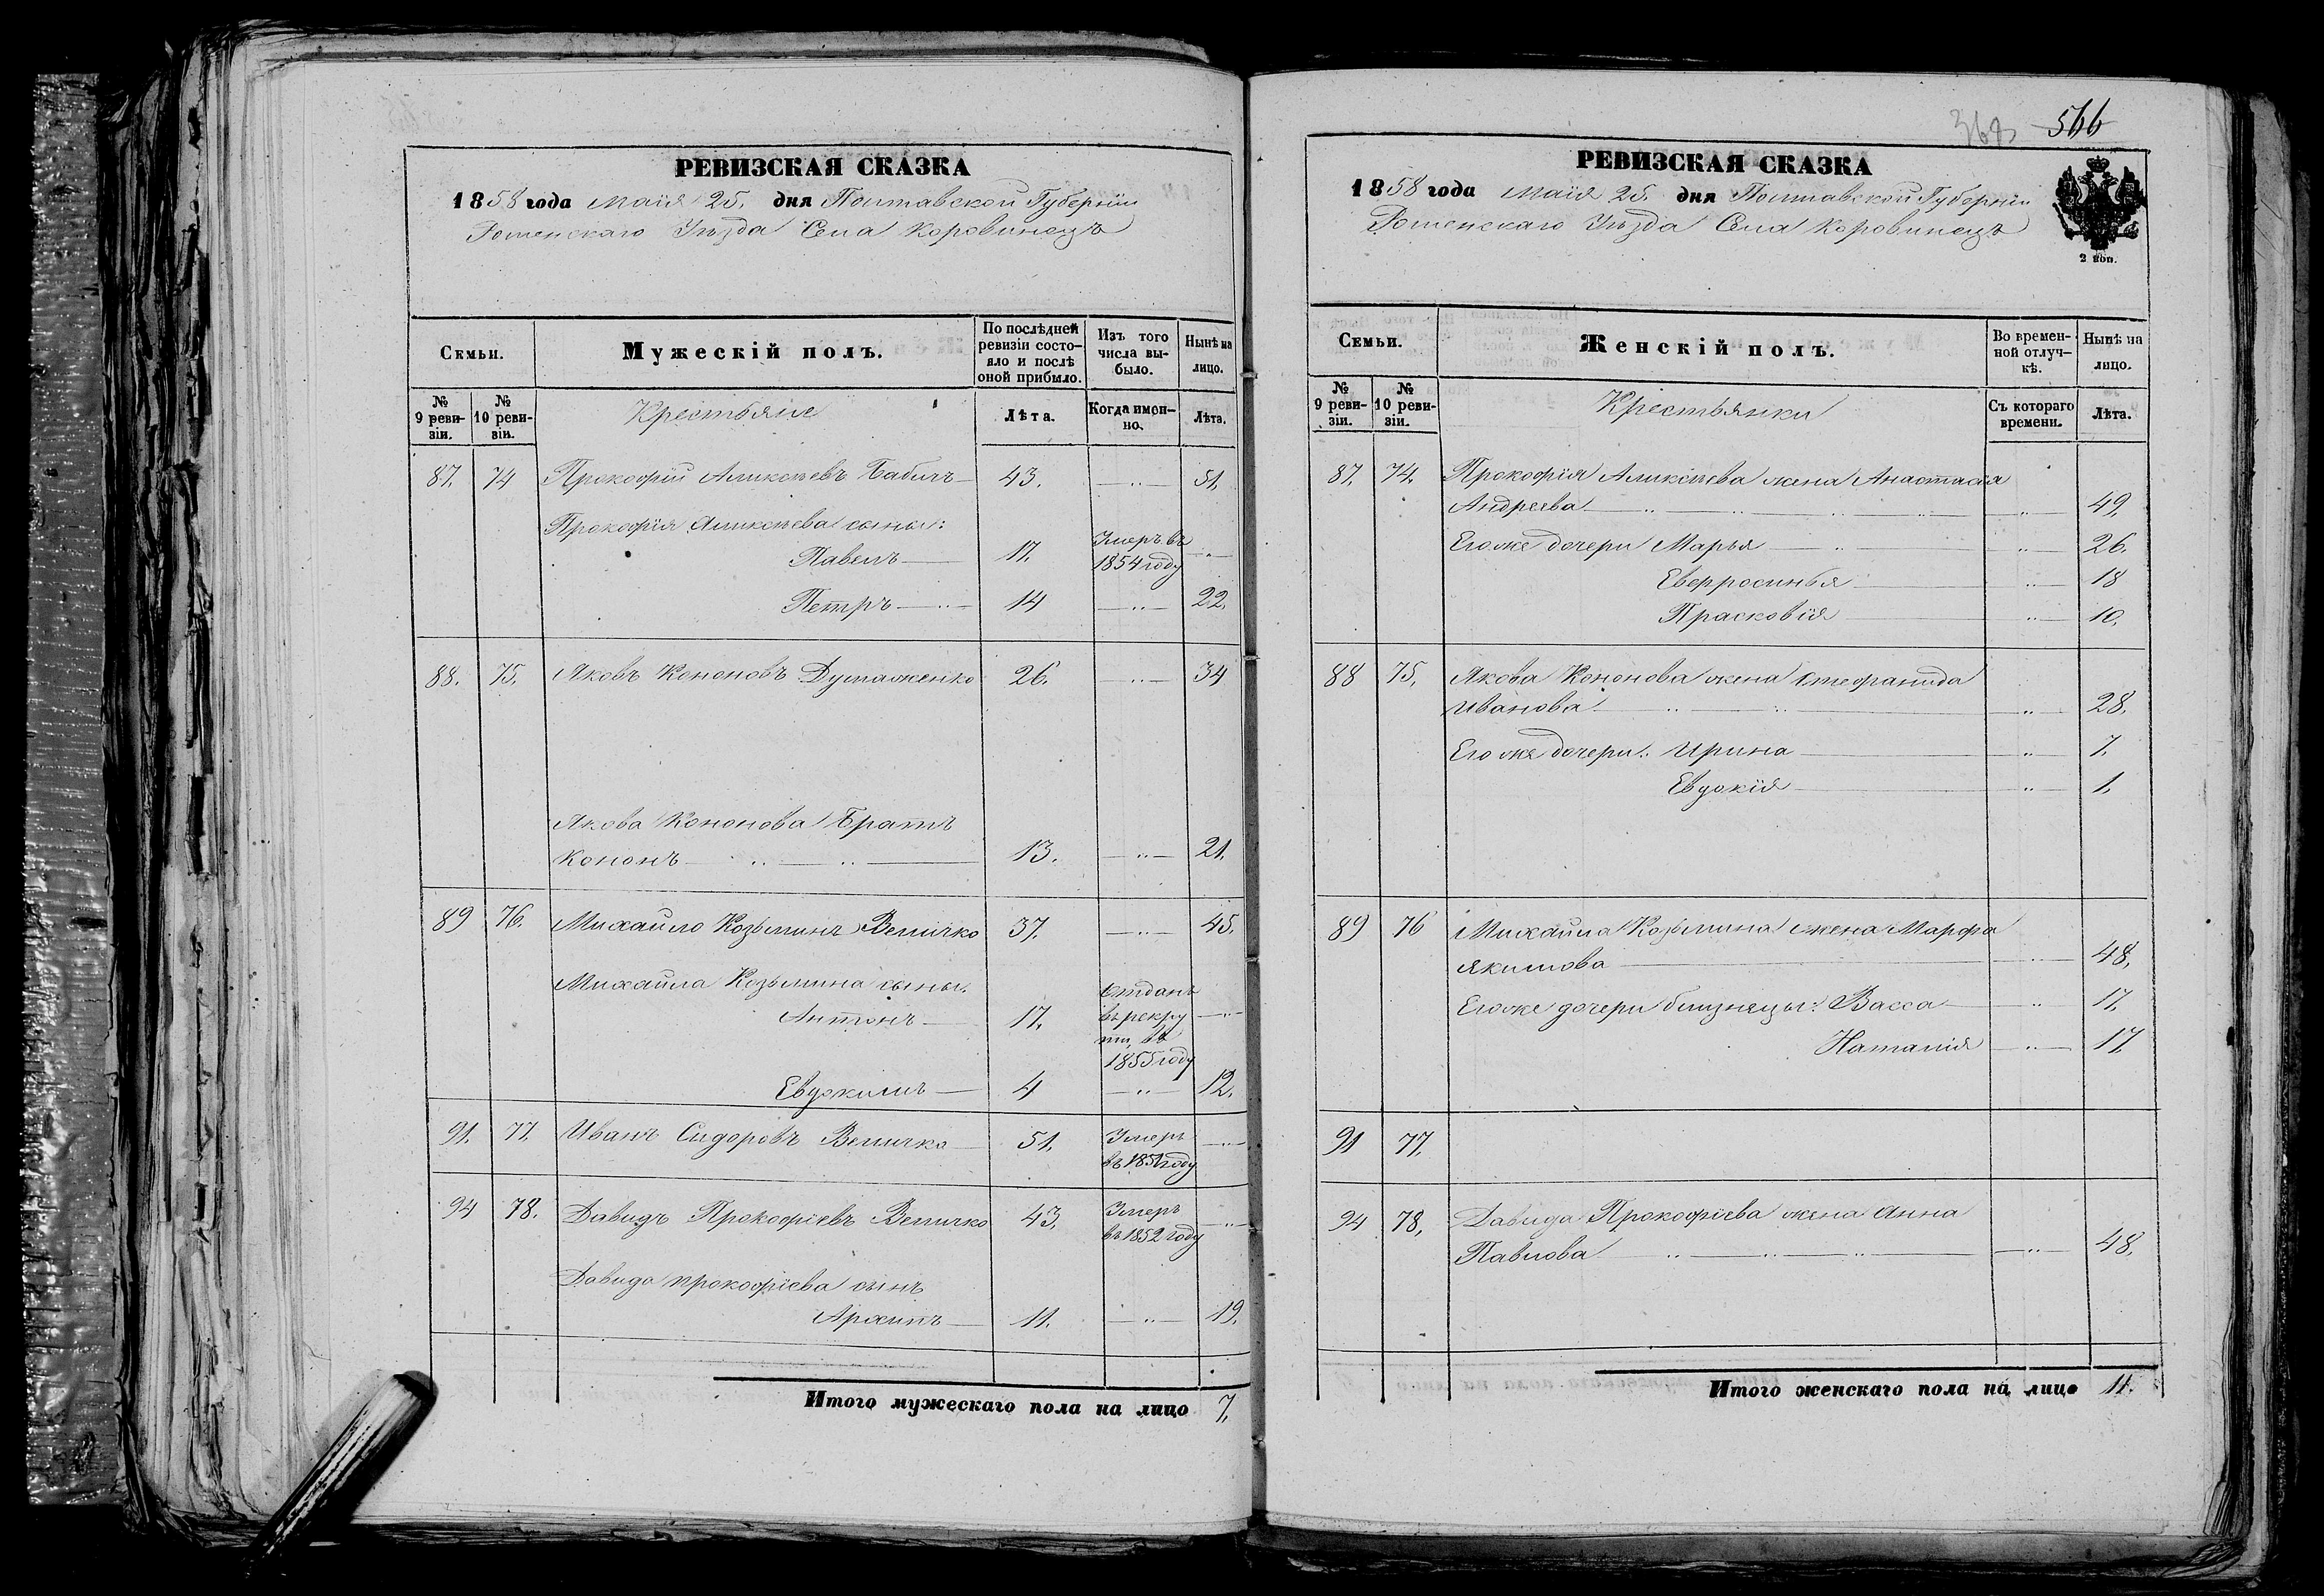 РЕВИЗСКАЯ СКАЗКА
1858 года Маія 25. дня Полтавской Губерніи
Роменскаго Уѣзда Села Коровинецъ
Семьи.
Мужескій полъ.
По послѣдней ревизіи состояло и послѣ оной прибыло.
Изъ того числа выбыло.
Нынѣ на лицо.
№ 9 ревизіи.
№ 10 ревизіи.
Крестьяне
Лѣта.
Когда именно.
Лѣта.
87. 74 Прокофій Аликсѣевъ Бабичъ 43. 51.
Прокофія Аликсѣева сыны:
Павелъ 17. Умеръ въ 1854 году
Петръ 14 22.
88. 75. Яковъ Кононовъ Думаженко 26. 34
Якова Кононова Братъ
Кононъ 13. 21.
89 76. Михайло Козьминъ Величко 37. 45.
Михайла Козьмина сыны.
Антонъ 17. Отданъ въ рекруты, въ 1855 году
Евдокимъ 4 12.
91. 77. Иванъ Сидоровъ Величко 51. Умеръ въ 1851 году
94 78. Давидъ Прокофіевъ Величко 43. Умеръ въ 1852 году
Давида Прокофіева сынъ
Архипъ 11. 19.
Итого мужескаго пола на лицо 7.
566
РЕВИЗСКАЯ СКАЗКА
1858 года Маія 25. дня Полтавской Губерніи
Роменскаго Уѣзда Села Коровинецъ
2 коп.
Семьи.
Женскій полъ.
Во временной отлучкѣ.
Нынѣ на лицо.
№ 9 ревизіи.
№ 10 ревизіи.
Крестьянки
Съ котораго времени.
Лѣта.
87. 74. Прокофія Аликсѣева жена Анастасія
Андреева 49.
Его же дочери Марья 26.
Еверросинья 18
Прасковія 10.
88 75. Якова Кононова жена Стефанида
Иванова 28.
Его же дочери: Ирина 7.
Евдокія 1.
89 76 Михайла Козьмина жена Марфа
Якимова 48.
Его же дочери близнецы: Васса 17.
Наталія 17.
91 77.
94 78. Давида Прокофіева жена Анна
Павлова 48.
Итого женскаго пола на лицо 11.